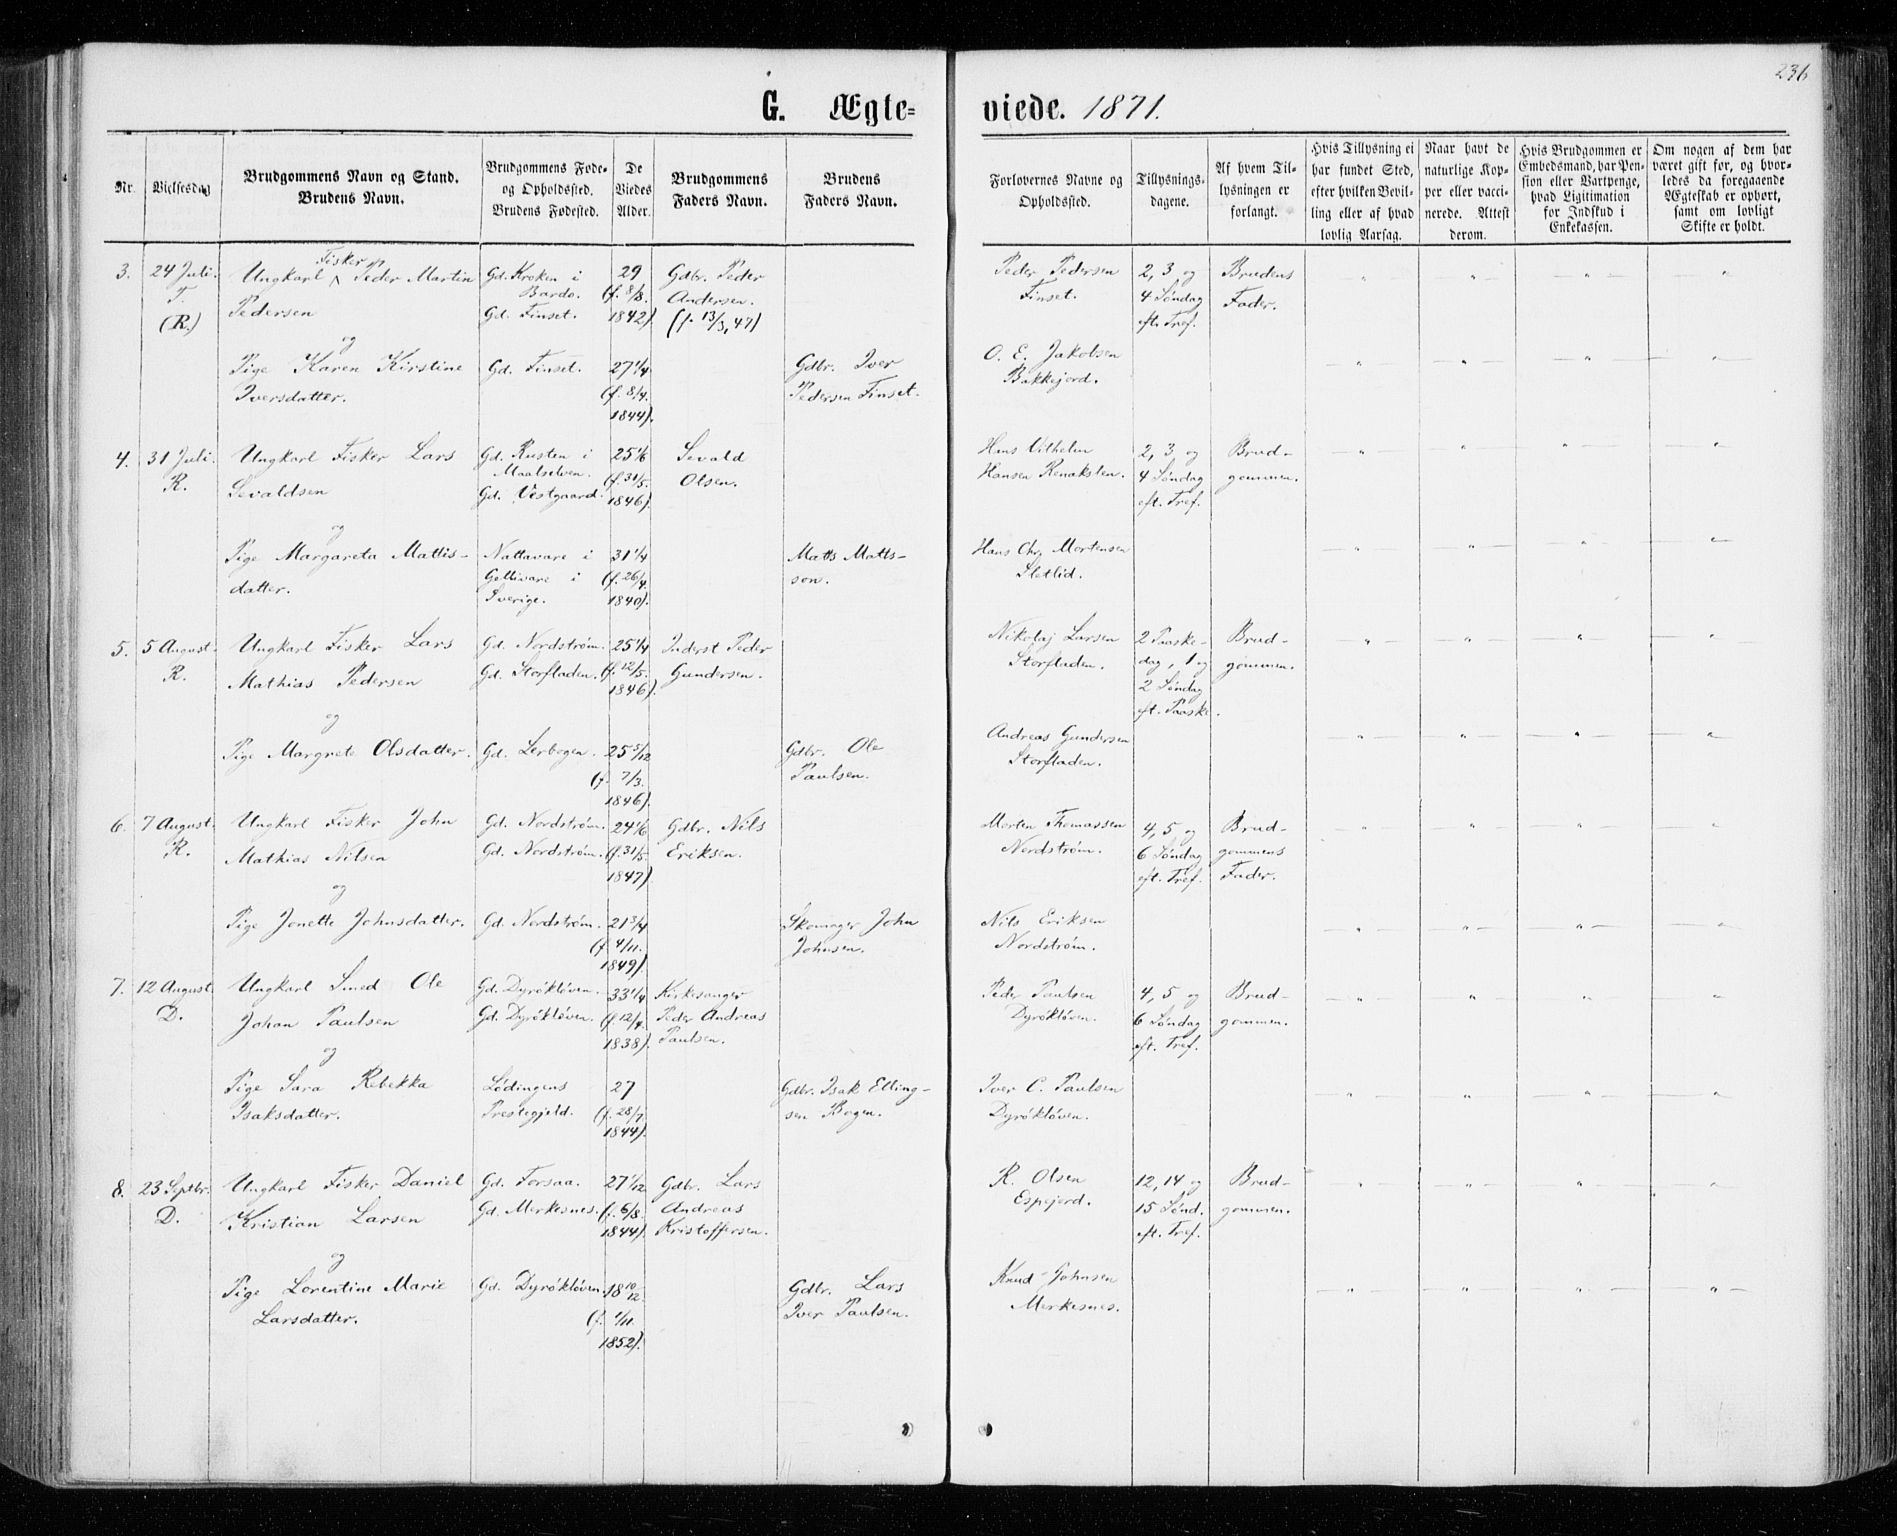 236
G. Ægte=
viede. 1871.
Nr.
Vielsesdag
Brudgommens Navn og Stand.
Brudens Navn.
Brudgommens Føde-
og Opholdssted.
Brudens Fødested.
De
Viedes
Alder.
Brudgommens
Faders Navn.
Brudens
Faders Navn.
Forlovernes Navne og
Opholdssted.
Tillysnings-
dagene.
Af hvem Til-
lysningen er
forlangt.
Hvis Tillysning ei
har fundet Sted,
efter hvilken Bevil-
ling eller af hvad
lovlig Aarsag.
Naar havt de
naturlige Kop-
per eller vacci-
nerede. Attest
derom.
Hvis Brudgommen er
Embedsmand, har Pen-
sion eller Vartpenge,
hvad Ligitimation
for Indskud i
Enkekassen.
Om nogen af dem har
været gift før, og hvor-
ledes da foregaaende
Ægteskab er ophørt,
samt om lovligt
Skifte er holdt.
3.
24 Juli.
T.
(R.)
Fisker
Ungkarl ^ Peder Martin
Pedersen
og
Pige Karen Kirstine
Iversdatter.
Gd. Kroken i
Bardo.
Gd. Finset.
Gd. Finset.
29
(f. 8/8.
1842).
27 1/4
(f. 8/4.
1844).
Gdbr. Peder
Andersen.
(f. 13/3, 47)
Gdbr. Iver
Pedersen Finset.
Peder Pedersen
Finset.
O. E. Jakobsen
Bakkejord.
2, 3 og
4 Søndag
eft. Tref.
Brudens
Fader.
4.
31 Juli.
R.
Ungkarl Fisker Lars
Sevaldsen
og
Pige Margareta Mattis-
datter.
Gd. Rusten i
Maalselven.
Gd. Vestgaard.
Nattavare i
Gellivare i
Sverige.
25 1/6
(f. 31/5.
1846).
31 1/4
(f. 26/4.
1840).
Sevald
Olsen.
Matts Matts-
son.
Hans Vilhelm
Hansen Renakslen.
Hans Chr. Mortensen
Sletlid.
2, 3 og
4 Søndag
eft. Tref.
Brud-
gommen.
5.
5 August.
R.
Ungkarl Fisker Lars
Mathias Pedersen
og
Pige Margrete Olsdatter.
Gd. Nordstrøm.
Gd. Storfladen.
Gd. Lerbogen.
25 1/4
(f. 12/5.
1846).
25 5/12
(f. 7/3.
1846).
Inderst Peder
Gundersen.
Gdbr. Ole
Paulsen.
Nikolaj Larsen
Storfladen.
Andreas Gundersen
Storfladen.
2 Paaske-
dag, 1 og
2 Søndag
eft. Paaske.
Brud-
gommen.
6.
7 August.
R.
Ungkarl Fisker John
Mathias Nilsen
og
Pige Jonette Johnsdatter.
Gd. Nordstrøm.
Gd. Nordstrøm.
Gd. Nordstrøm.
24 1/6
(f. 31/5.
1847).
21 3/4
(f. 4/11.
1849).
Gdbr. Nils
Eriksen.
Skomager John
Johnsen.
Morten Thomassen
Nordstrøm.
Nils Eriksen
Nordstrøm.
4, 5 og
6 Søndag
eft. Tref.
Brud-
gommens
Fader.
7.
12 August.
D.
Ungkarl Smed Ole
Johan Paulsen
og
Pige Sara Rebekka
Isaksdatter.
Gd. Dyrökløven.
Gd. Dyrökløven.
Lødingens
Prestegjeld.
33 1/4
(f. 12/4.
1838).
27
(f. 28/7.
1844).
Kirkesanger
Peder Andreas
Paulsen.
Gdbr. Isak Elling-
sen Bogen.
Peder Paulsen
Dyrökløven.
Iver C. Paulsen
Dyrökløven.
4, 5 og
6 Søndag
eft. Tref.
Brud-
gommen.
8.
23 Septbr.
D.
Ungkarl Fisker Daniel
Kristian Larsen
og
Pige Lorentine Marie
Larsdatter.
Gd. Forsaa.
Gd. Merkesnes.
Gd. Dyrökløven.
27 1/12
(f. 6/8.
1844).
18 10/12
(f. 1/11.
1852).
Gdbr. Lars
Andreas
Kristoffersen.
Gdbr. Lars
Iver Paulsen.
R. Olsen
Espejord.
Knud Johnsen
Merkesnes.
12, 14 og
15 Sønd.
eft. Tref.
Brud-
gommen.